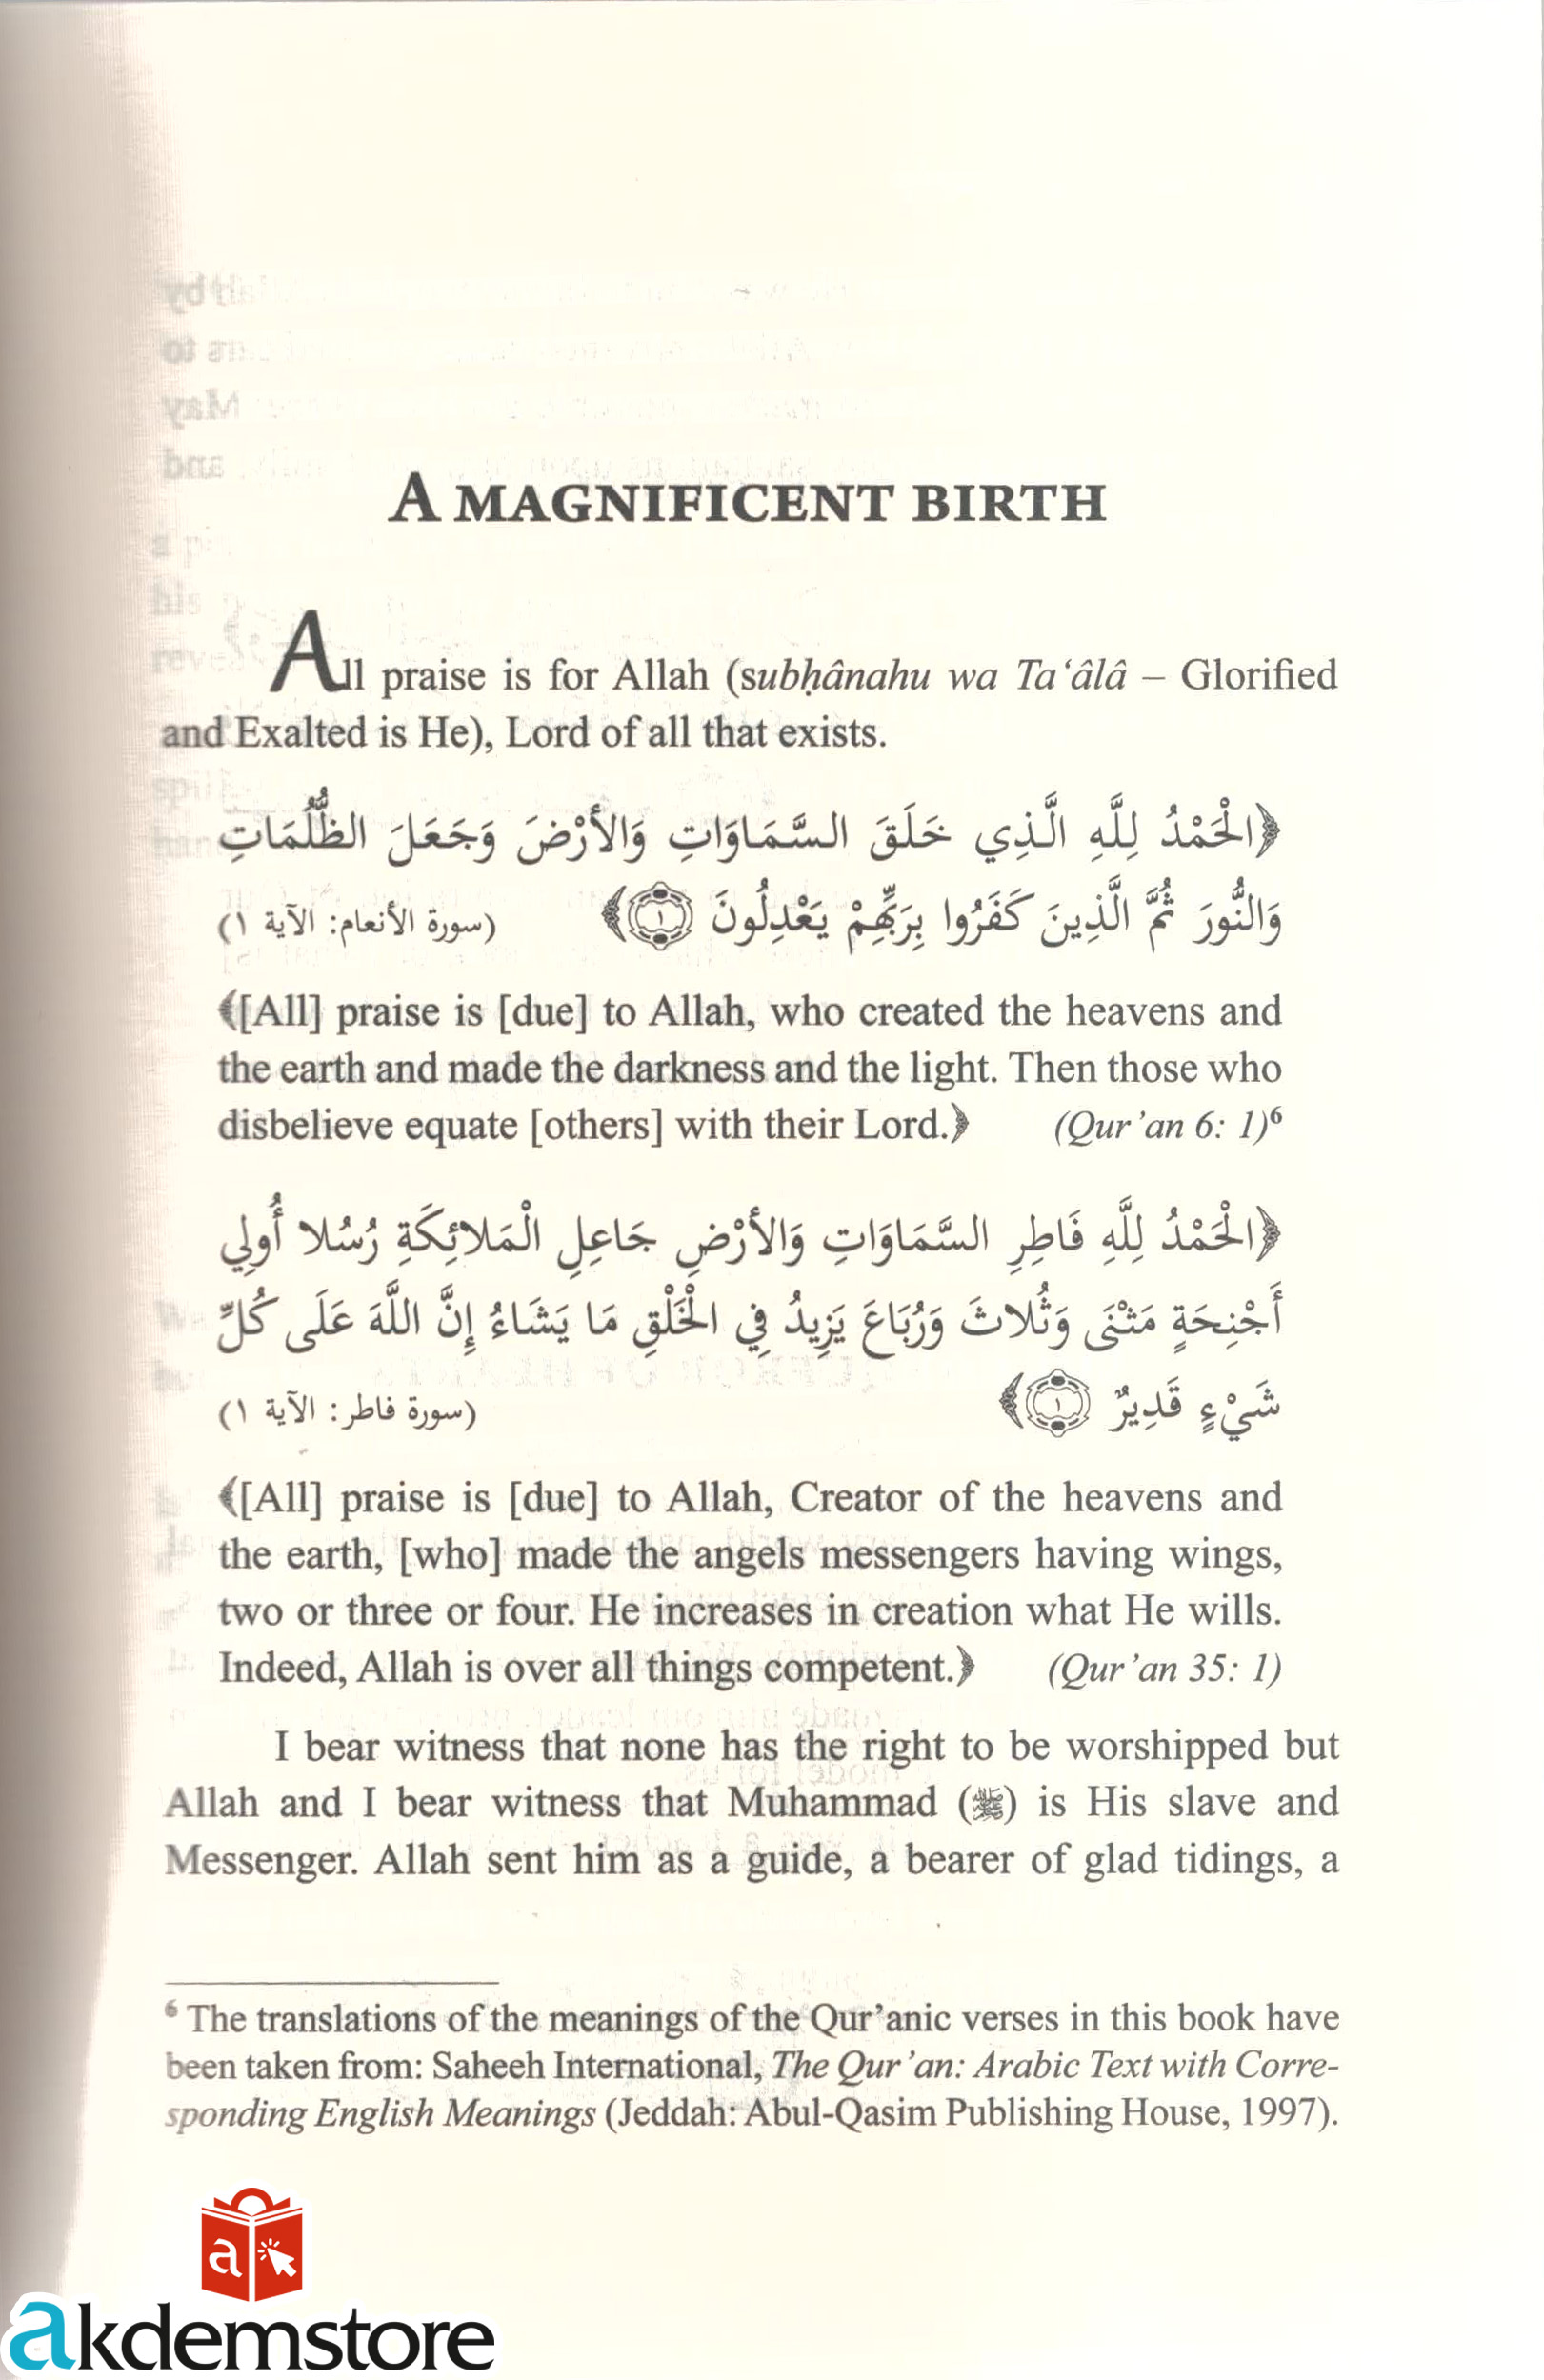 A MAGNIFICENT BIRTH
All praise is for Allah (subḥânahu wa Ta‘âlâ – Glorified
and Exalted is He), Lord of all that exists.
﴿الْحَمْدُ لِلَّهِ الَّذِي خَلَقَ السَّمَاوَاتِ وَالأَرْضَ وَجَعَلَ الظُّلُمَاتِ
وَالنُّورَ ثُمَّ الَّذِينَ كَفَرُوا بِرَبِّهِمْ يَعْدِلُونَ ١﴾ (سورة الأنعام: الآية ١)
﴾[All] praise is [due] to Allah, who created the heavens and
the earth and made the darkness and the light. Then those who
disbelieve equate [others] with their Lord.﴿ (Qur’an 6: 1)⁶
﴿الْحَمْدُ لِلَّهِ فَاطِرِ السَّمَاوَاتِ وَالأَرْضِ جَاعِلِ الْمَلائِكَةِ رُسُلا أُولِي
أَجْنِحَةٍ مَثْنَى وَثُلاثَ وَرُبَاعَ يَزِيدُ فِي الْخَلْقِ مَا يَشَاءُ إِنَّ اللَّهَ عَلَى كُلِّ
شَيْءٍ قَدِيرٌ ١﴾ (سورة فاطر: الآية ١)
﴾[All] praise is [due] to Allah, Creator of the heavens and
the earth, [who] made the angels messengers having wings,
two or three or four. He increases in creation what He wills.
Indeed, Allah is over all things competent.﴿ (Qur’an 35: 1)
I bear witness that none has the right to be worshipped but
Allah and I bear witness that Muhammad (ﷺ) is His slave and
Messenger. Allah sent him as a guide, a bearer of glad tidings, a
⁶ The translations of the meanings of the Qur’anic verses in this book have
been taken from: Saheeh International, The Qur’an: Arabic Text with Corre-
sponding English Meanings (Jeddah: Abul-Qasim Publishing House, 1997).
a
akdemstore